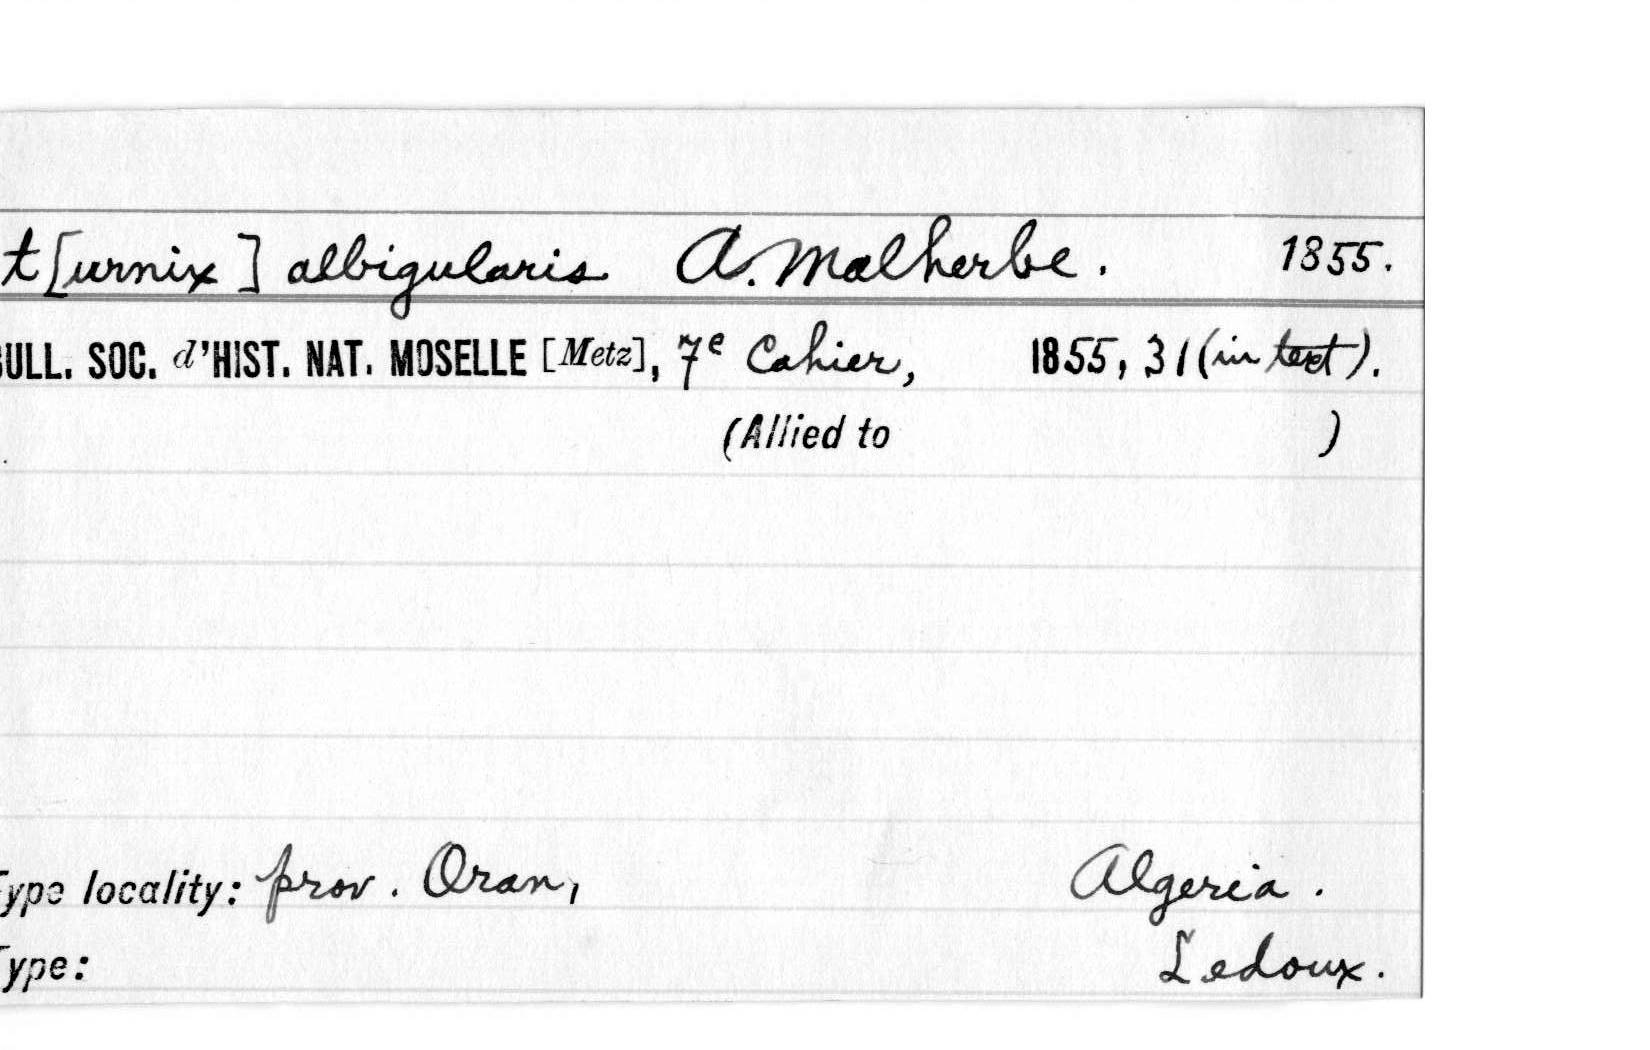 t[urnix] albigularis A. Malherbe. 1855.
BULL. SOC. d'HIST. NAT. MOSELLE [Metz], 7e Cahier, 1855, 31 (in text).
(Allied to )
Type locality: prov. Oran, Algeria.
Type: Ledoux.